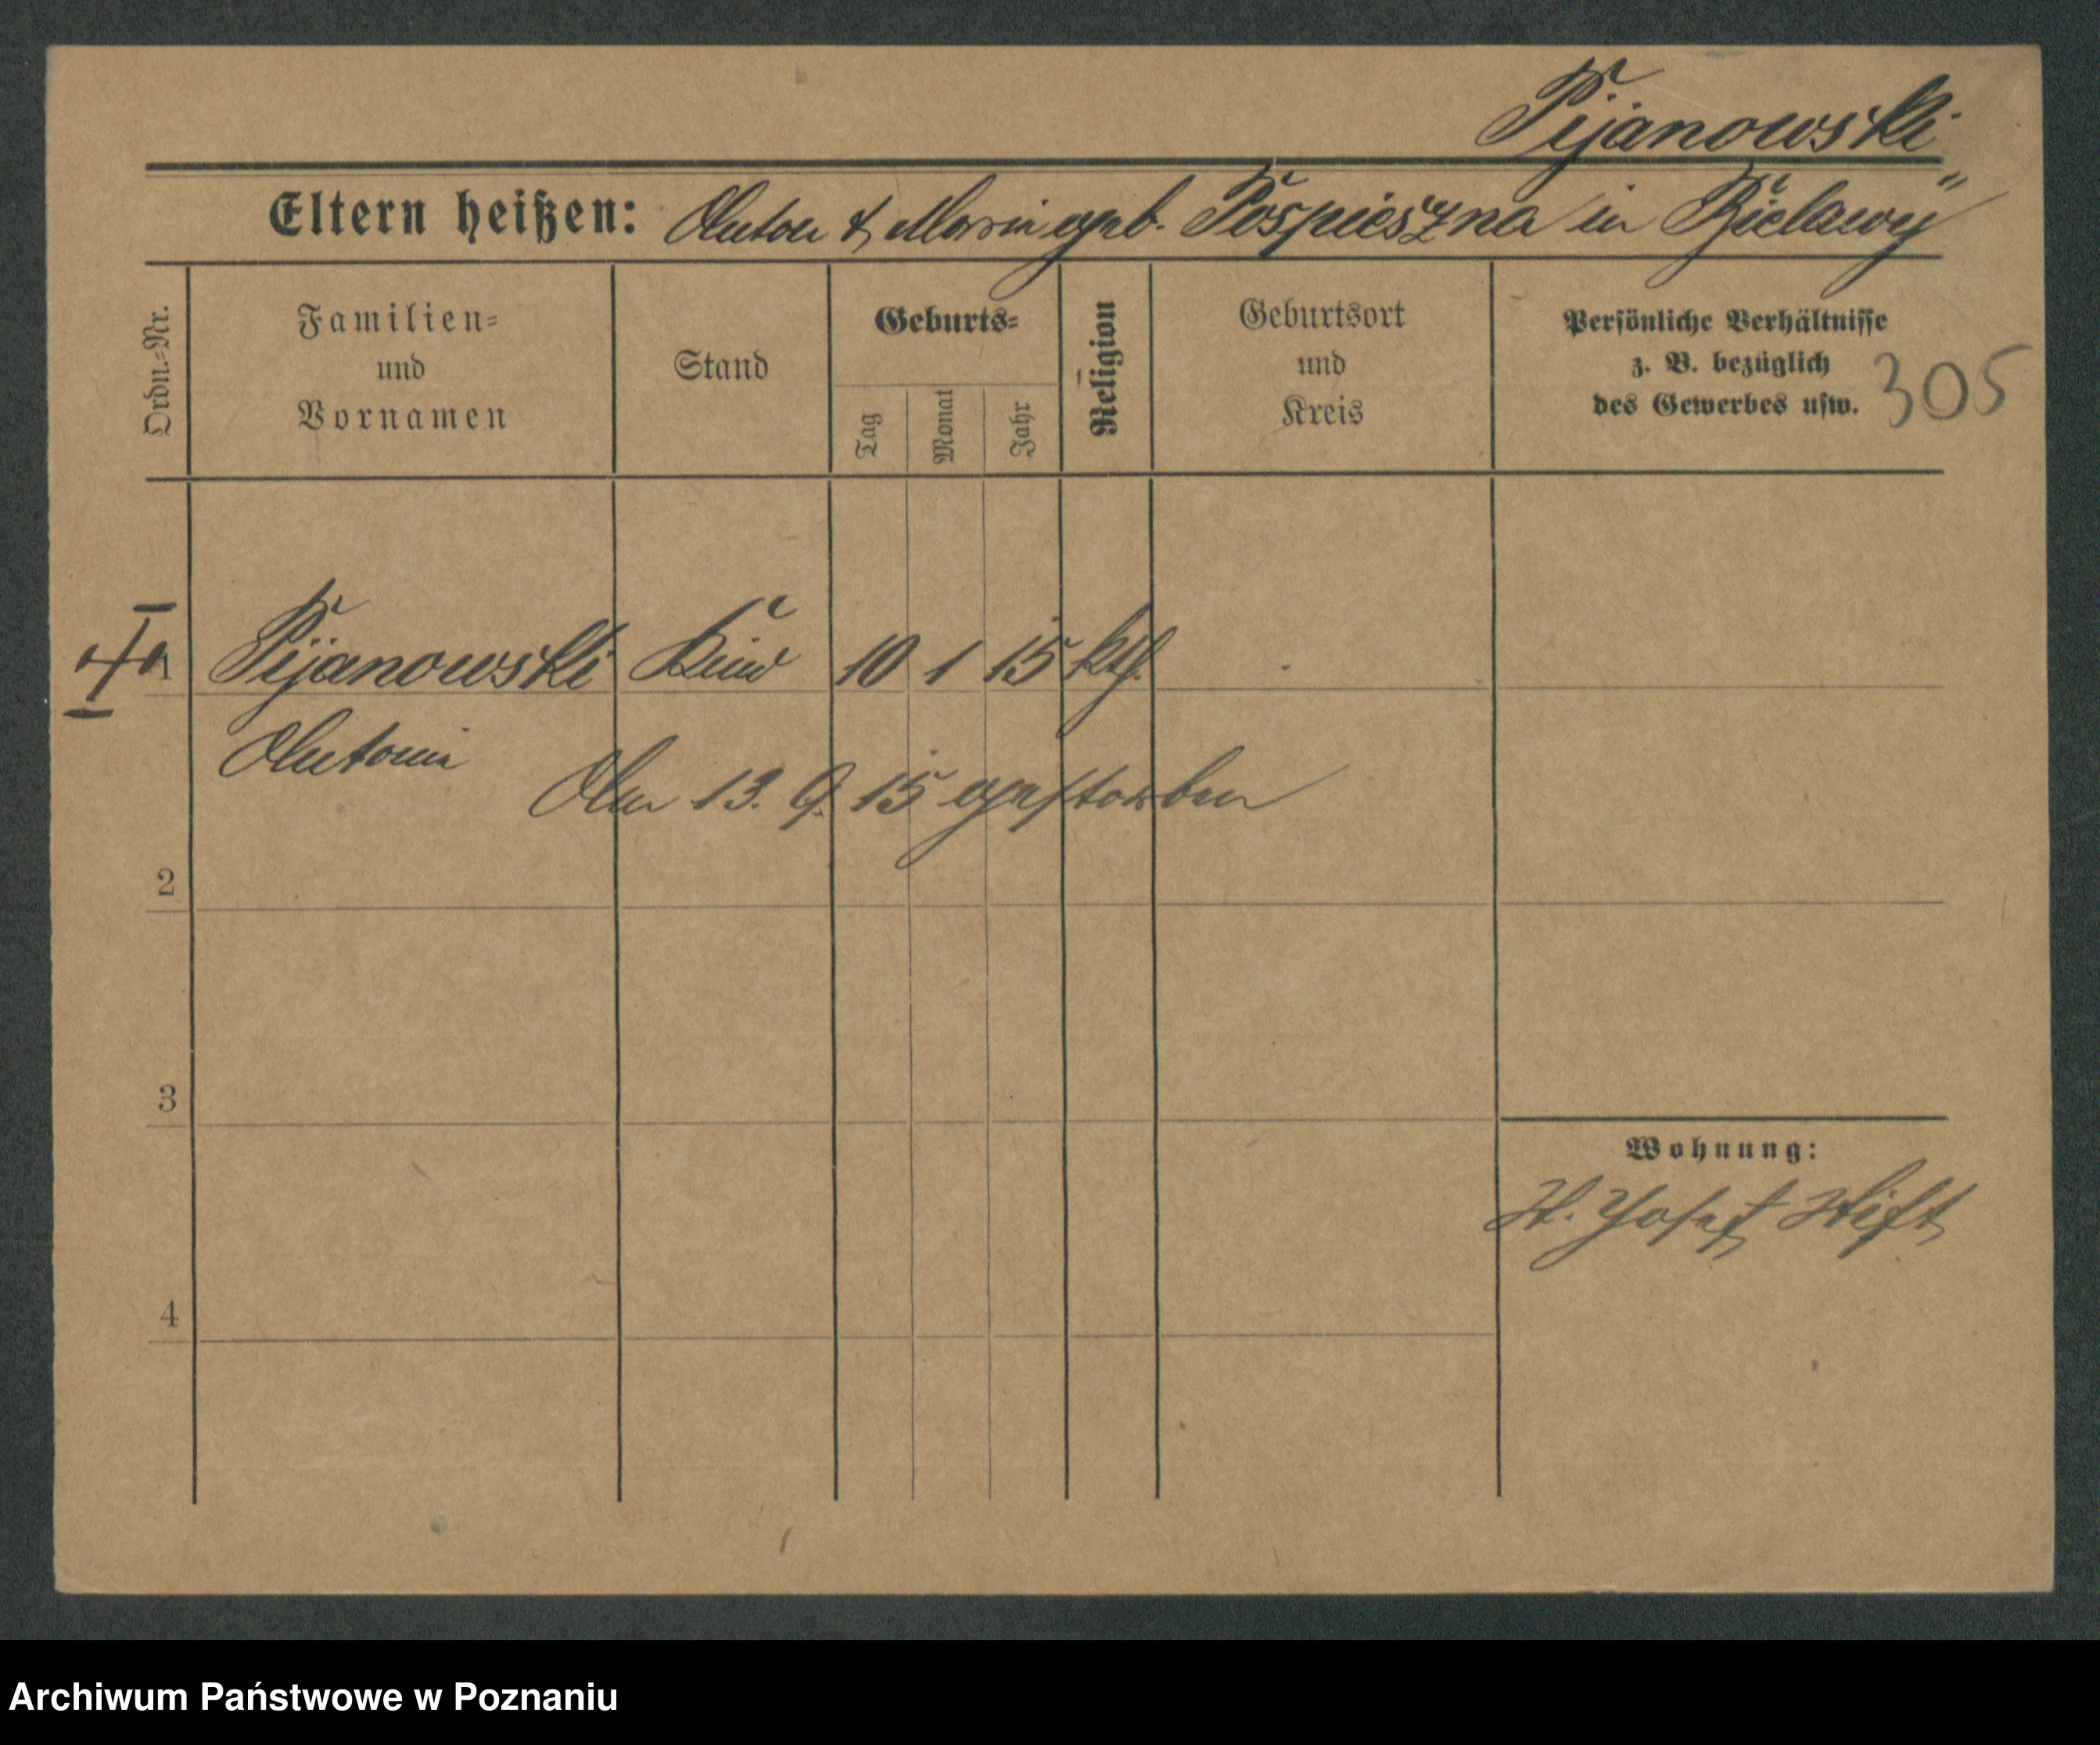 Pijanowski
Eltern heißen: Anton & Marie geb. Pospieszna in Bielawy
Ordn.=Nr.
Familien=
und
Vornamen
Stand
Geburts=
Tag
Monat
Jahr
Religion
Geburtsort
und
Kreis
Persönliche Verhältnisse
z. B. bezüglich
des Gewerbes usw.
305
1 Pijanowski Kind 10 1 15 kth.
Antoni
Am 13. 9. 15 gestorben
2
3
4
Wohnung:
St. Josef Stift
Archiwum Państwowe w Poznaniu